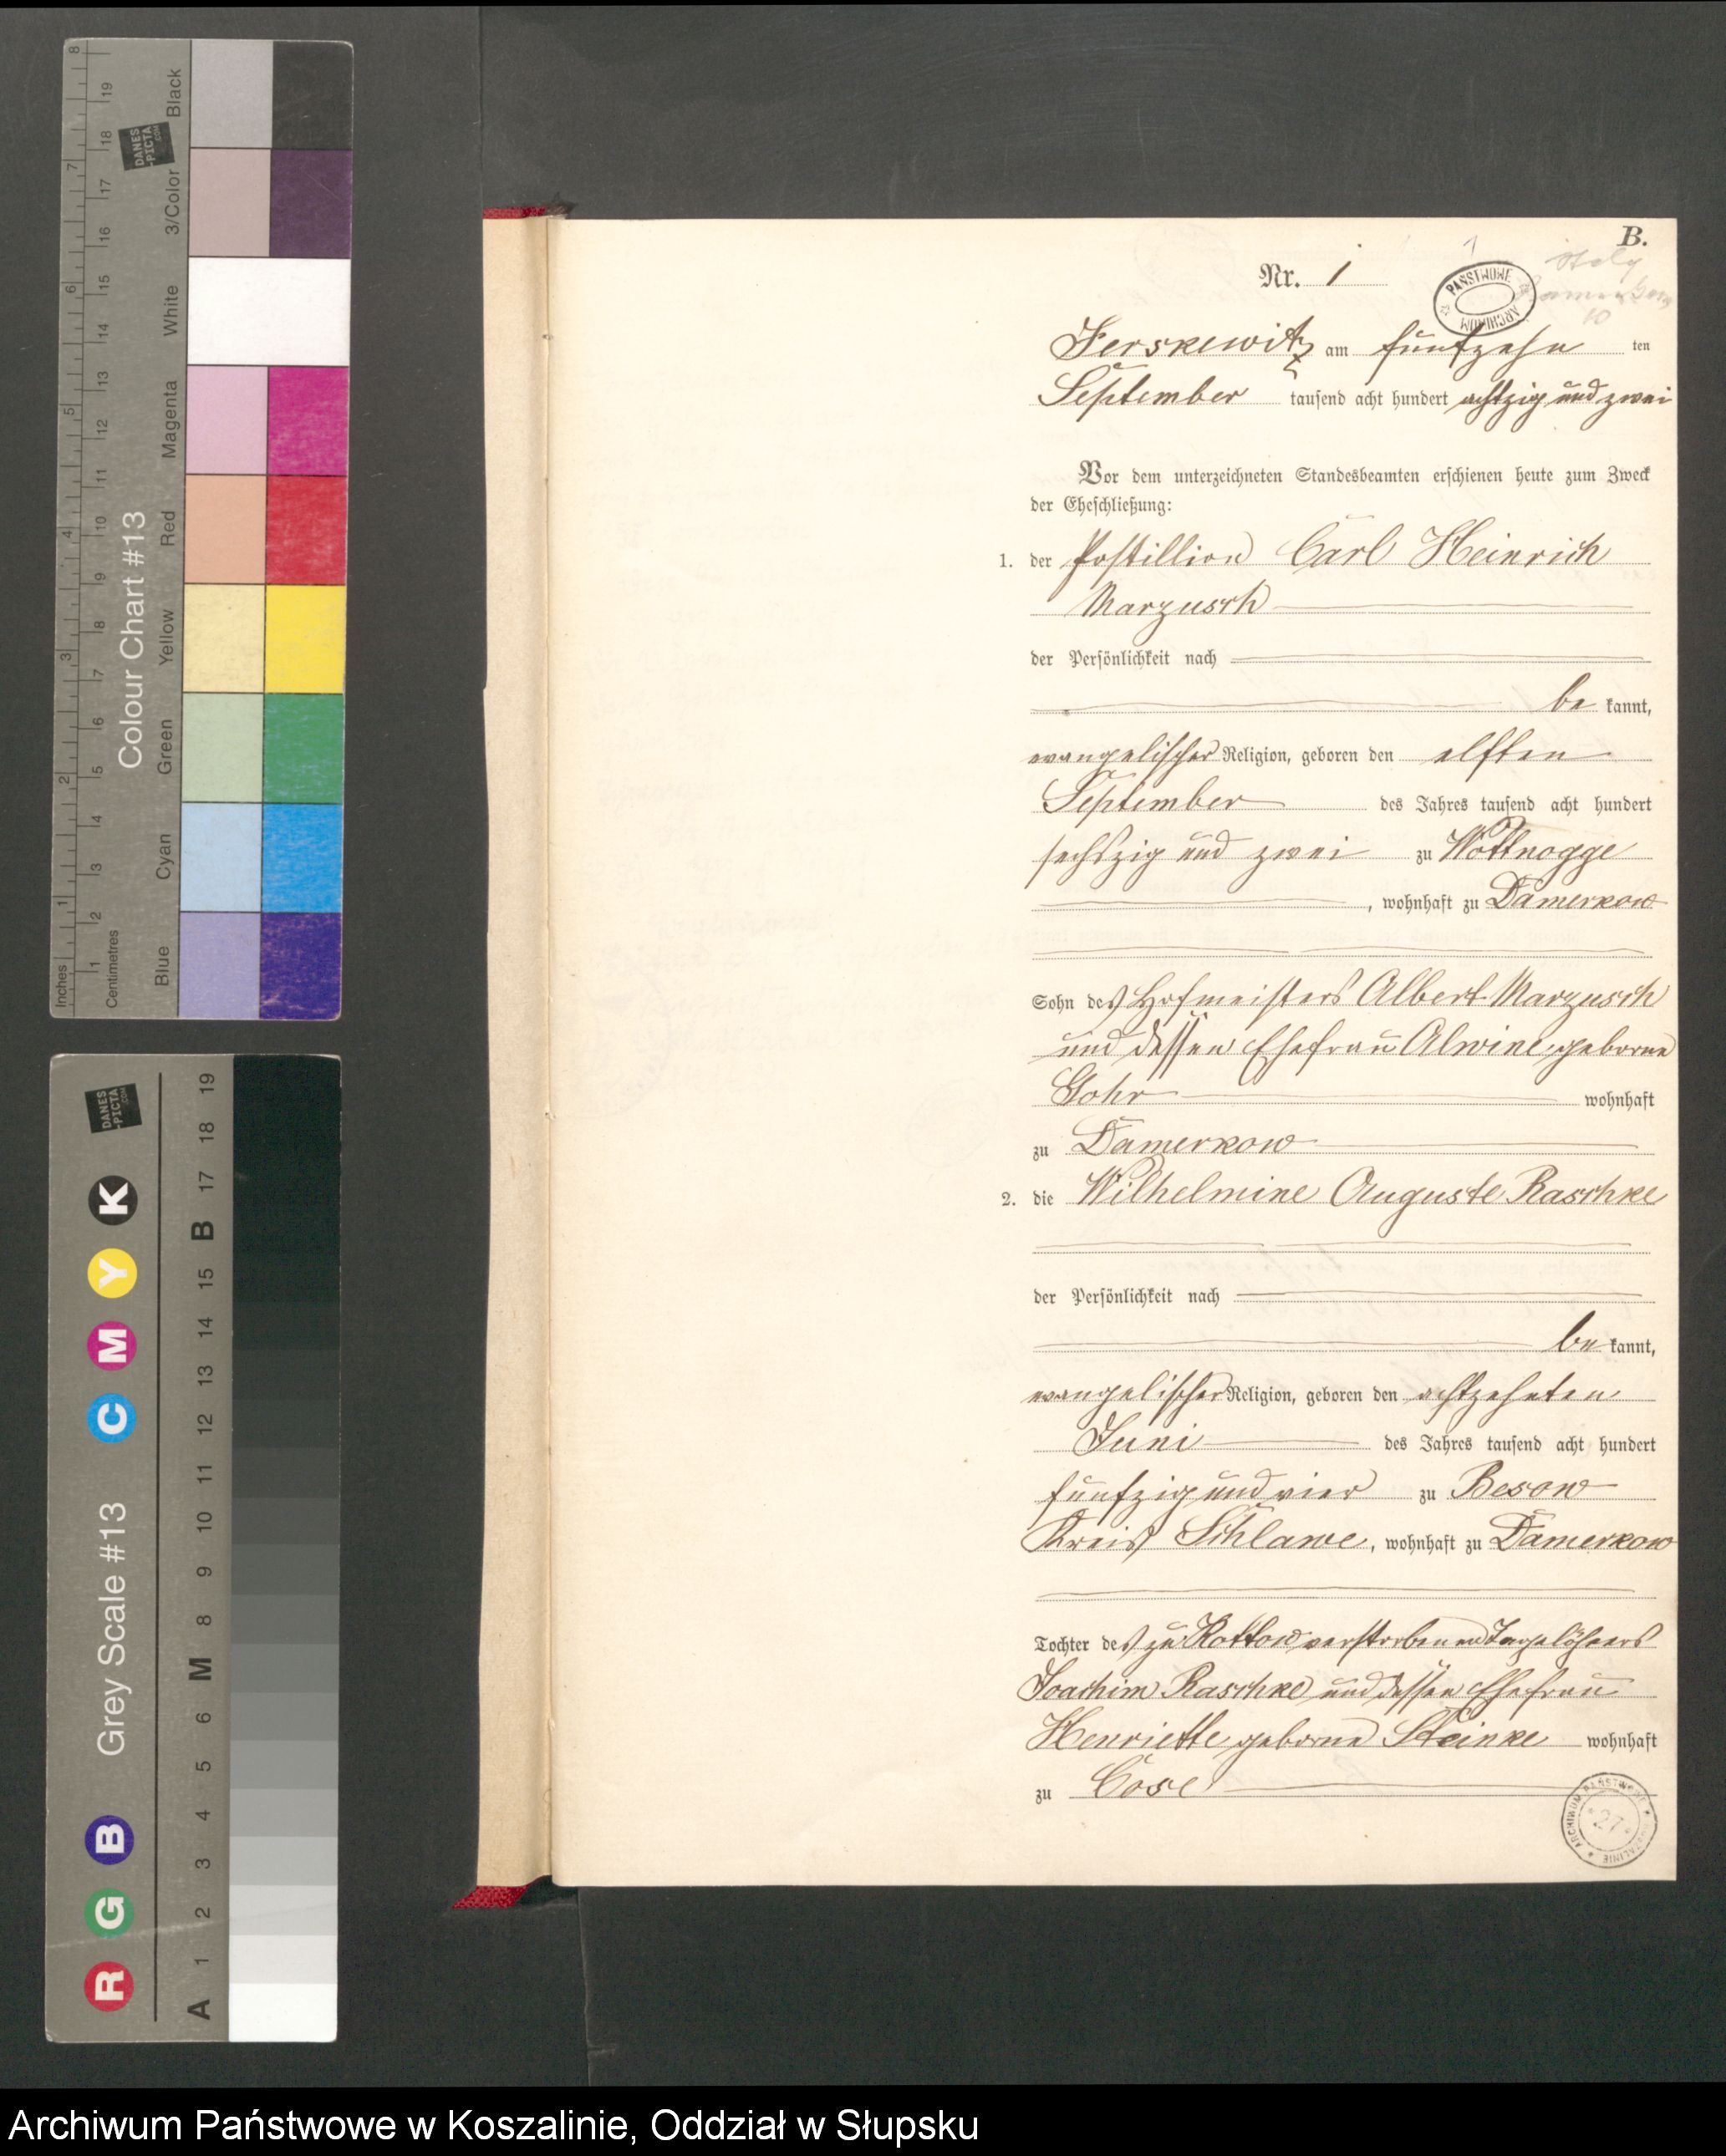 B.
Nr. 1
Jerskewitz am fünfzehn ten
September tausend acht hundert achtzig und zwei
Vor dem unterzeichneten Standesbeamten erschienen heute zum Zweck
der Eheschließung:
1. der Postillion Carl Heinrich
Marzusch
der Persönlichkeit nach
be kannt,
evangelischer Religion, geboren den elften
September des Jahres tausend acht hundert
sechszig und zwei zu Wottnogge
, wohnhaft zu Damerkow
Sohn des Hofmeisters Albert Marzusch
und dessen Ehefrau Alwine geborne
Gohr wohnhaft
zu Damerkow
2. die Wilhelmine Auguste Raschke
der Persönlichkeit nach
be kannt,
evangelischer Religion, geboren den achtzehnten
Juni des Jahres tausend acht hundert
fünfzig und vier zu Besow
Kreis Schlawe, wohnhaft zu Damerkow
Tochter des zu Kottow verstorbenen Tagelöhners
Joachim Raschke und dessen Ehefrau
Henriette geborne Steinke wohnhaft
zu Cose
PAŃSTWOWE ARCHIWUM
ARCHIWUM PAŃSTWOWE KOSZALINIE
27
Colour Chart #13
Blue Cyan Green Yellow Red Magenta White 3/Color Black
Inches 1 2 3 4 5 6 7 8
Centimetres 1 2 3 4 5 6 7 8 9 10 11 12 13 14 15 16 17 18 19
DANES-PICTA.COM
Grey Scale #13
R G B C M Y K
A 1 2 3 4 5 6 M 8 9 10 11 12 13 14 15 B 17 18 19
DANES-PICTA.COM
Archiwum Państwowe w Koszalinie, Oddział w Słupsku